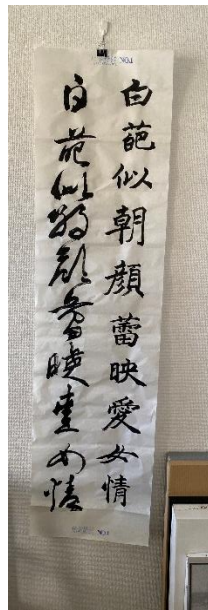 白葩似朝顔蕾映愛女情
白葩似朝顔蕾映愛女情